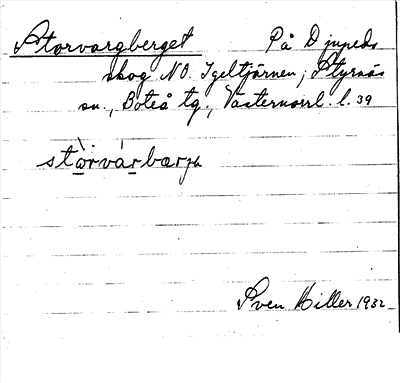 Storvargberget På Djupeds
skog NO. Igeltjärnen; Styrnäs
sn., Boteå tg., Västernorrl. l. 39
stòrvárbærjə
Sven Hiller 1932